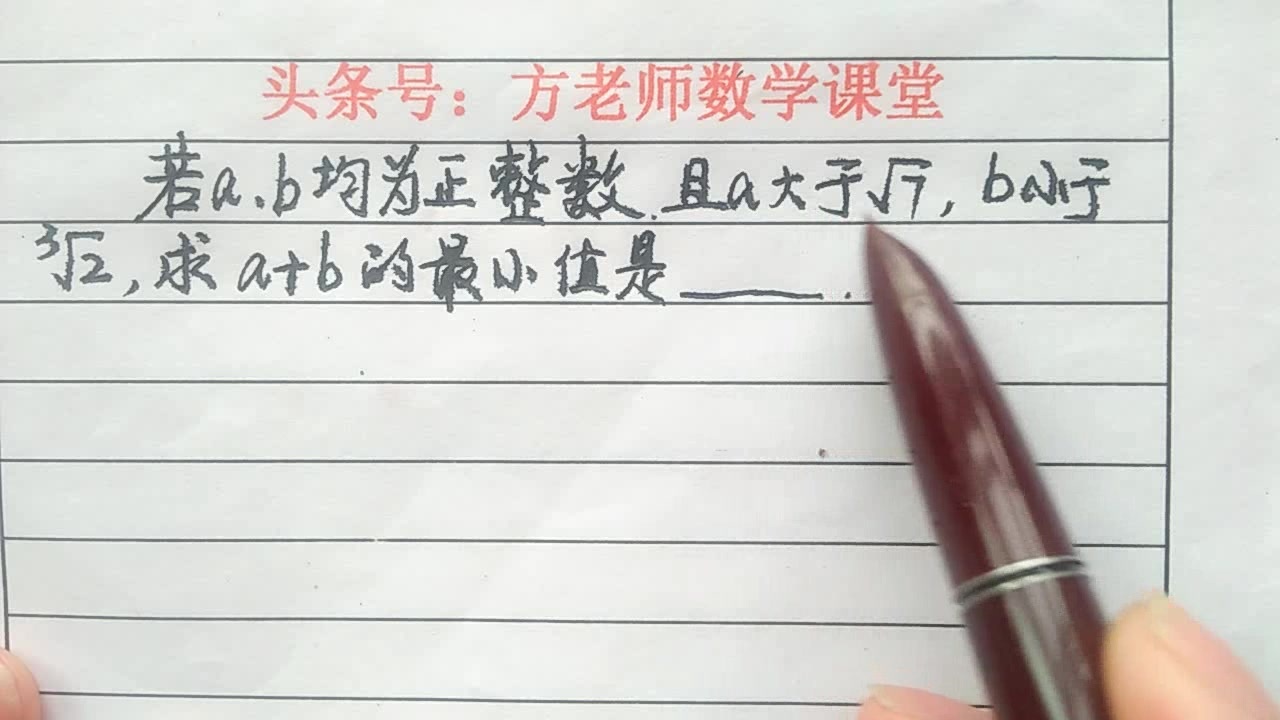 头条号：方老师数学课堂
若a、b均为正整数.且a大于√7, b小于
³√2, 求a+b的最小值是______.